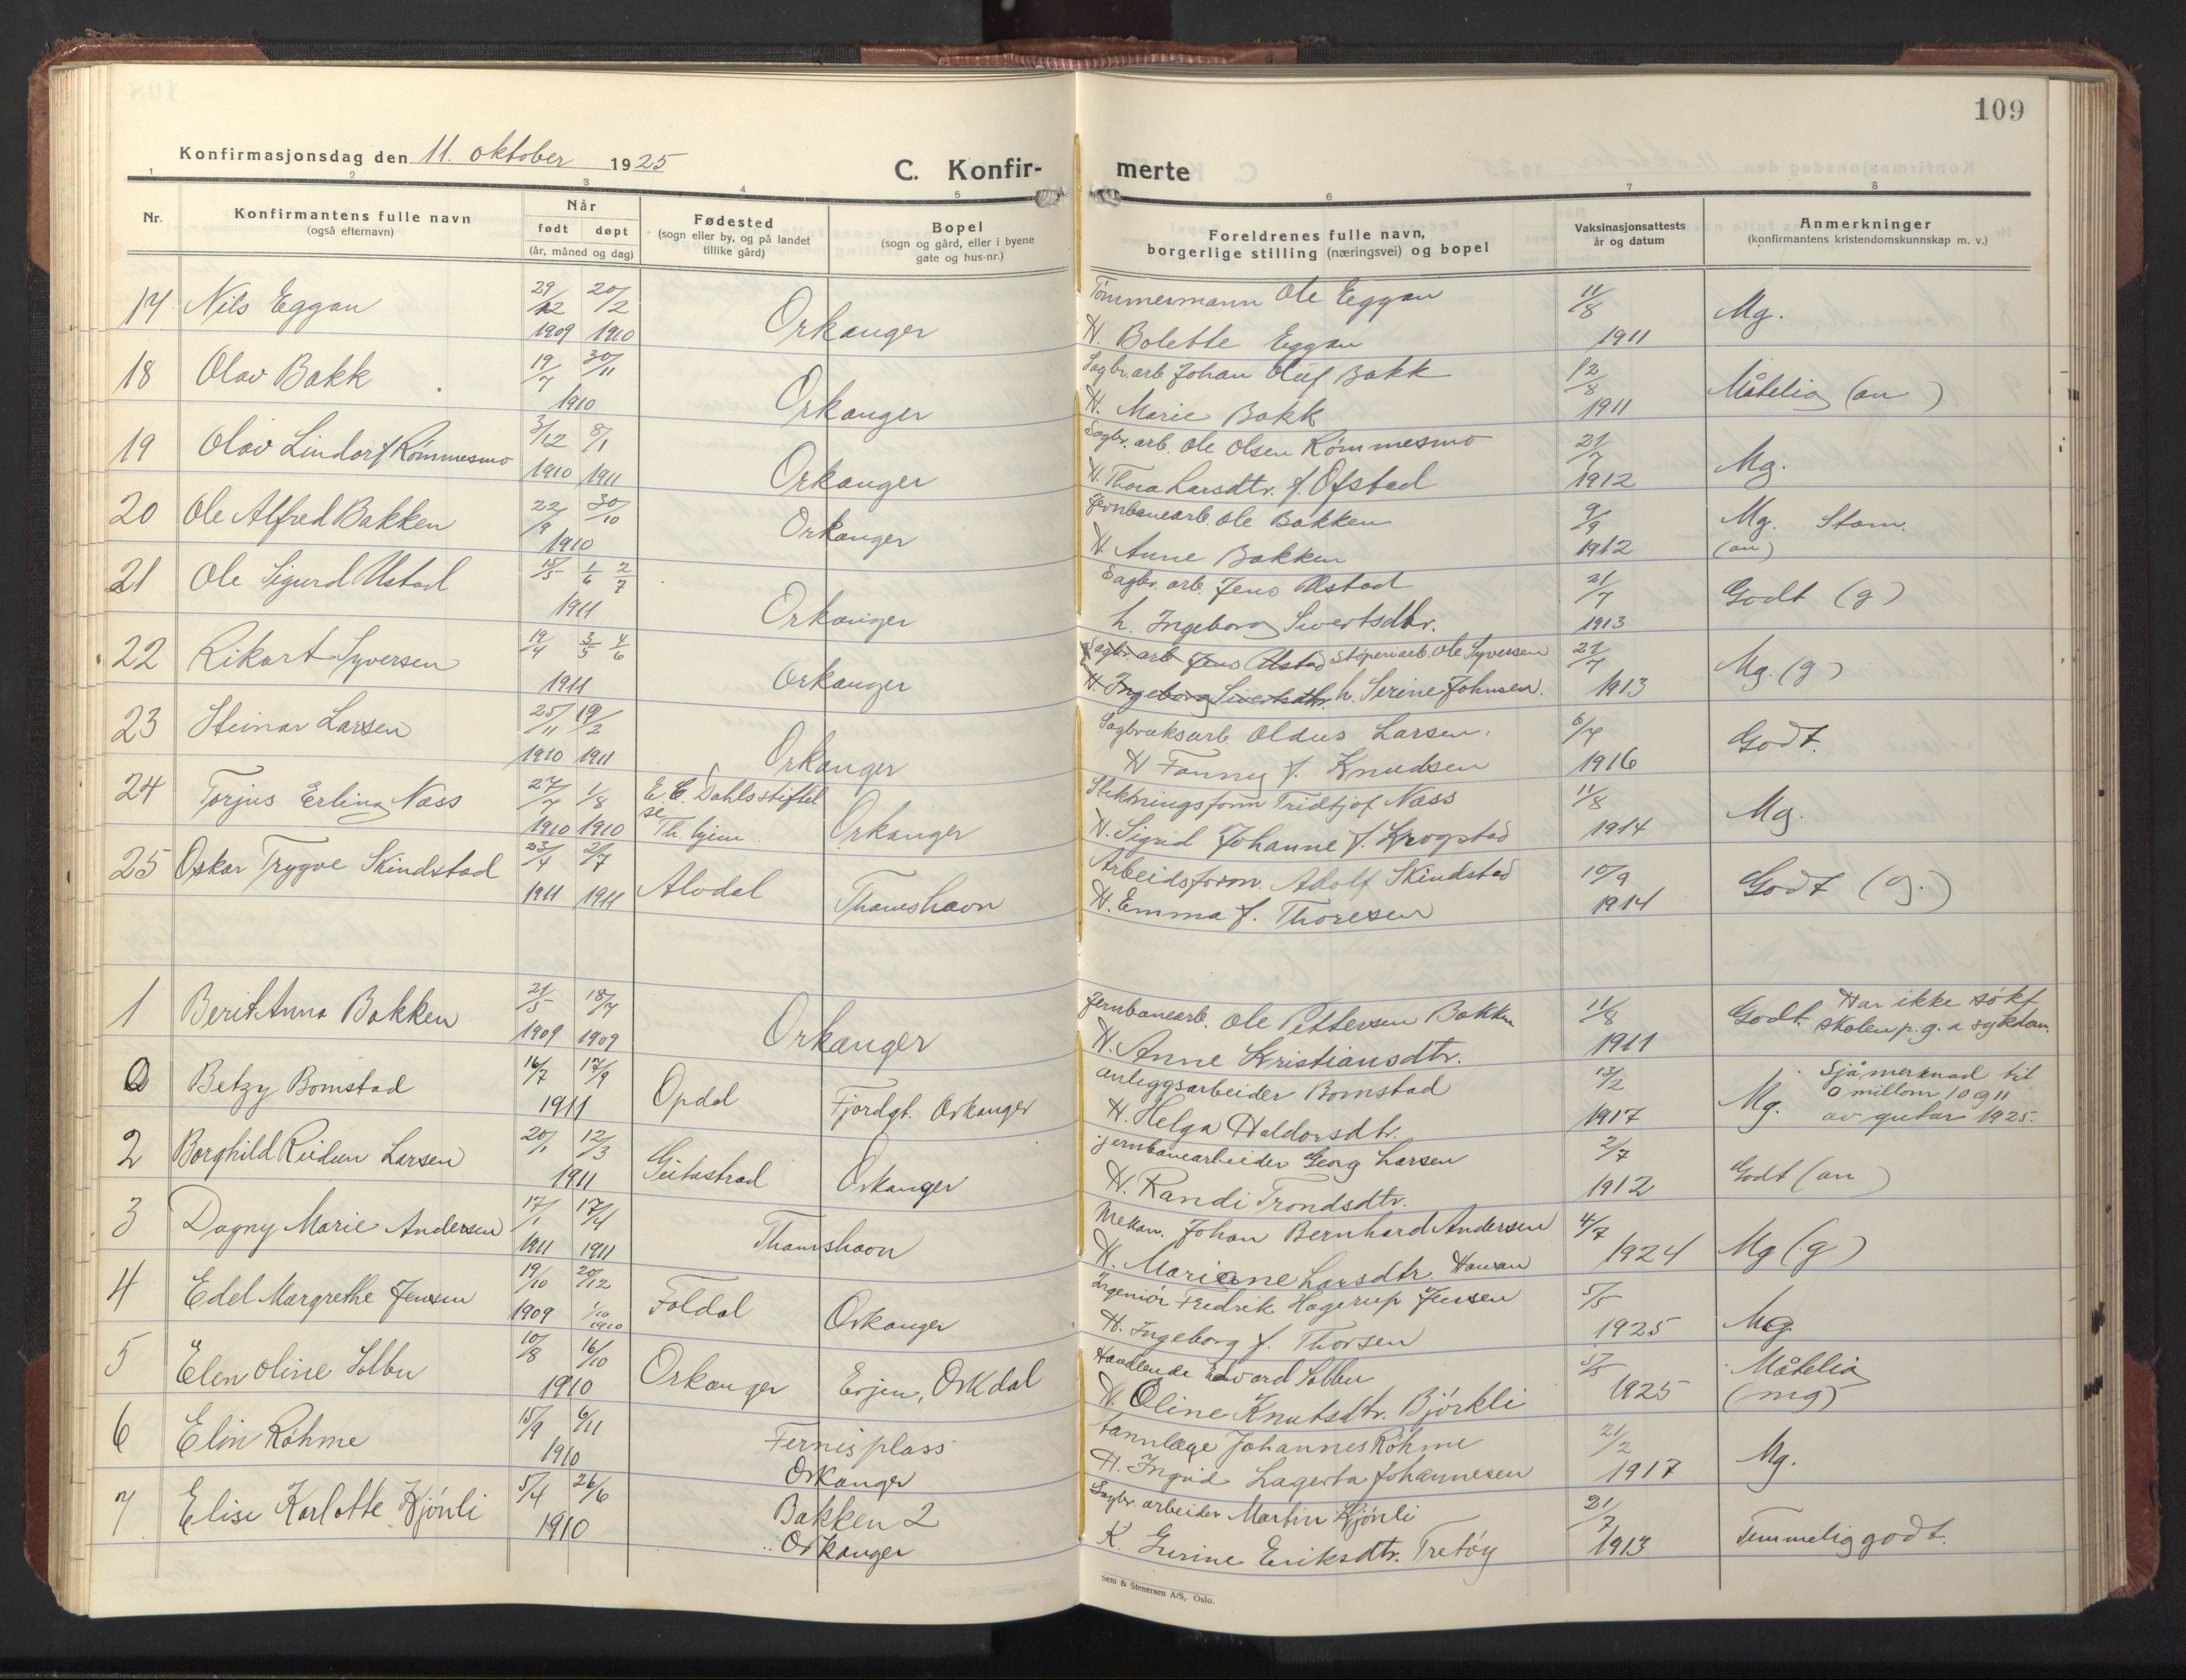 109
Konfirmasjonsdag den 11. oktober 1925
C. Konfir-
merte
1 2 3 4 5 6 7 8
Nr. Konfirmantens fulle navn (også efternavn) Når født døpt (år, måned og dag) Fødested (sogn eller by, og på landet tillike gård) Bopel (sogn og gård, eller i byene gate og hus-nr.) Foreldrenes fulle navn, borgerlige stilling (næringsvei) og bopel Vaksinasjonsattests år og datum Anmerkninger (konfirmantens kristendomskunnskap m. v.)
17 Nils Eggan 29/12 1909 20/2 1910 Orkanger Tømmermann Ole Eggan 11/8 1911 Mg.
H. Bolette Eggan
18 Olav Bakk 19/7 30/11 1910 Orkanger Sagbr.arb. Johan Oluf Bakk 12/8 1911 Måtelig (an)
H. Marie Bakk
19 Olav Lindorf Rømmesmo 3/12 1910 8/1 1911 Orkanger Sagbr. arb. Ole Olsen Rømmesmo 21/7 1912 Mg.
H. Thora Larsdtr. f. Ofstad
20 Ole Alfred Bakken 22/9 30/10 1910 Orkanger Jernbanearb. Ole Bakken 9/9 1912 Mg. Stam. (an)
H. Anne Bakken
21 Ole Sigurd Ustad 15/5 1/6 2/7 1911 Orkanger Sagbr. arb. Jens Ustad 21/7 1913 Godt (g)
h. Ingeborg Sivertsdtr.
22 Rikart Syversen 19/4 3/5 4/6 1911 Orkanger Sagbr. arb. Jens Ustad Støperiarb. Ole Syversen 21/7 1913 Mg. (g)
H. Ingeborg Sivertsdtr. h. Serine Johnsen.
23 Steinar Larsen 25/11 1910 19/2 1911 Orkanger Sagbruksarb. Oldus Larsen. 6/7 1916 Godt.
H Fanny f. Knudsen
24 Torjus Erling Næss 27/7 1910 1/8 1910 E. C. Dahls stiftelse Th.hjem. Orkanger Fridtjof Næss 11/8 1914 Mg.
H. Sigrid Johanne f. Krogstad
25 Oskar Trygve Skindstad 23/4 1911 2/7 1911 Alvdal Thamshavn Arbeidsform. Adolf Skindstad 10/9 1914 Godt (g.)
H. Emma f. Thoresen
1 Berit Anna Bakken 21/5 1909 18/7 1909 Orkanger Jernbanearb. Ole Pettersen Bakken 11/8 1911 Godt. Har ikke søkt
H. Anne Kristiansdtr. skolen p.g.a sykdom.
0 Betzy Bomstad 16/7 17/9 1911 Opdal Fjordgt. Orkanger anleggsarbeider Bomstad 13/2 1917 Mg. Sjå merknad til
H. Helga Haldorsdtr. 0 millom 10 og 11 av gutar 1925.
2 Borghild Reidun Larsen 20/1 12/3 1911 Orkanger jernbanearbeider Georg Larsen 2/7 1912 Godt (an)
H. Randi Trondsdtr.
3 Dagny Marie Andersen 17/1 1911 17/4 1911 Thamshavn Mekan. Johan Bernhard Andersen 4/7 1924 Mg (g)
H. Mariane Larsdtr. Hansen
4 Edel Margrethe Jenssen 19/10 1909 20/12 1/10 1910 Foldal Orkanger Ingeniør Fredrik Hagerup Jenssen 5/5 1925 Mg
H. Ingeborg f. Thorsen
5 Elen Oline Solbu 10/8 16/10 1910 Orkanger Evjen, Orkdal Handlende Edvard Solbu 5/5 1925 Måtelig (mg)
H. Oline Knutsdtr. Bjørkli
6 Elin Röhme 15/9 6/11 1910 Fernisplass Orkanger tannlæge Johannes Röhme 21/2 1917 Mg.
H. Ingrid Lagerta Johannesen
7 Elise Karlotte Kjønli 5/4 26/6 1910 Bakken 2 Orkanger Sagbr. arbeider Martin Kjønli 21/7 1913 Temmelig godt.
K. Gurine Eriksdtr. Tretøy
Sem & Stenersen A/S, Oslo.